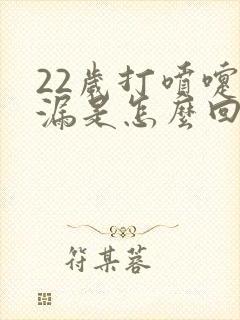 22歲打噴嚏
漏是怎麼回
符某蓉